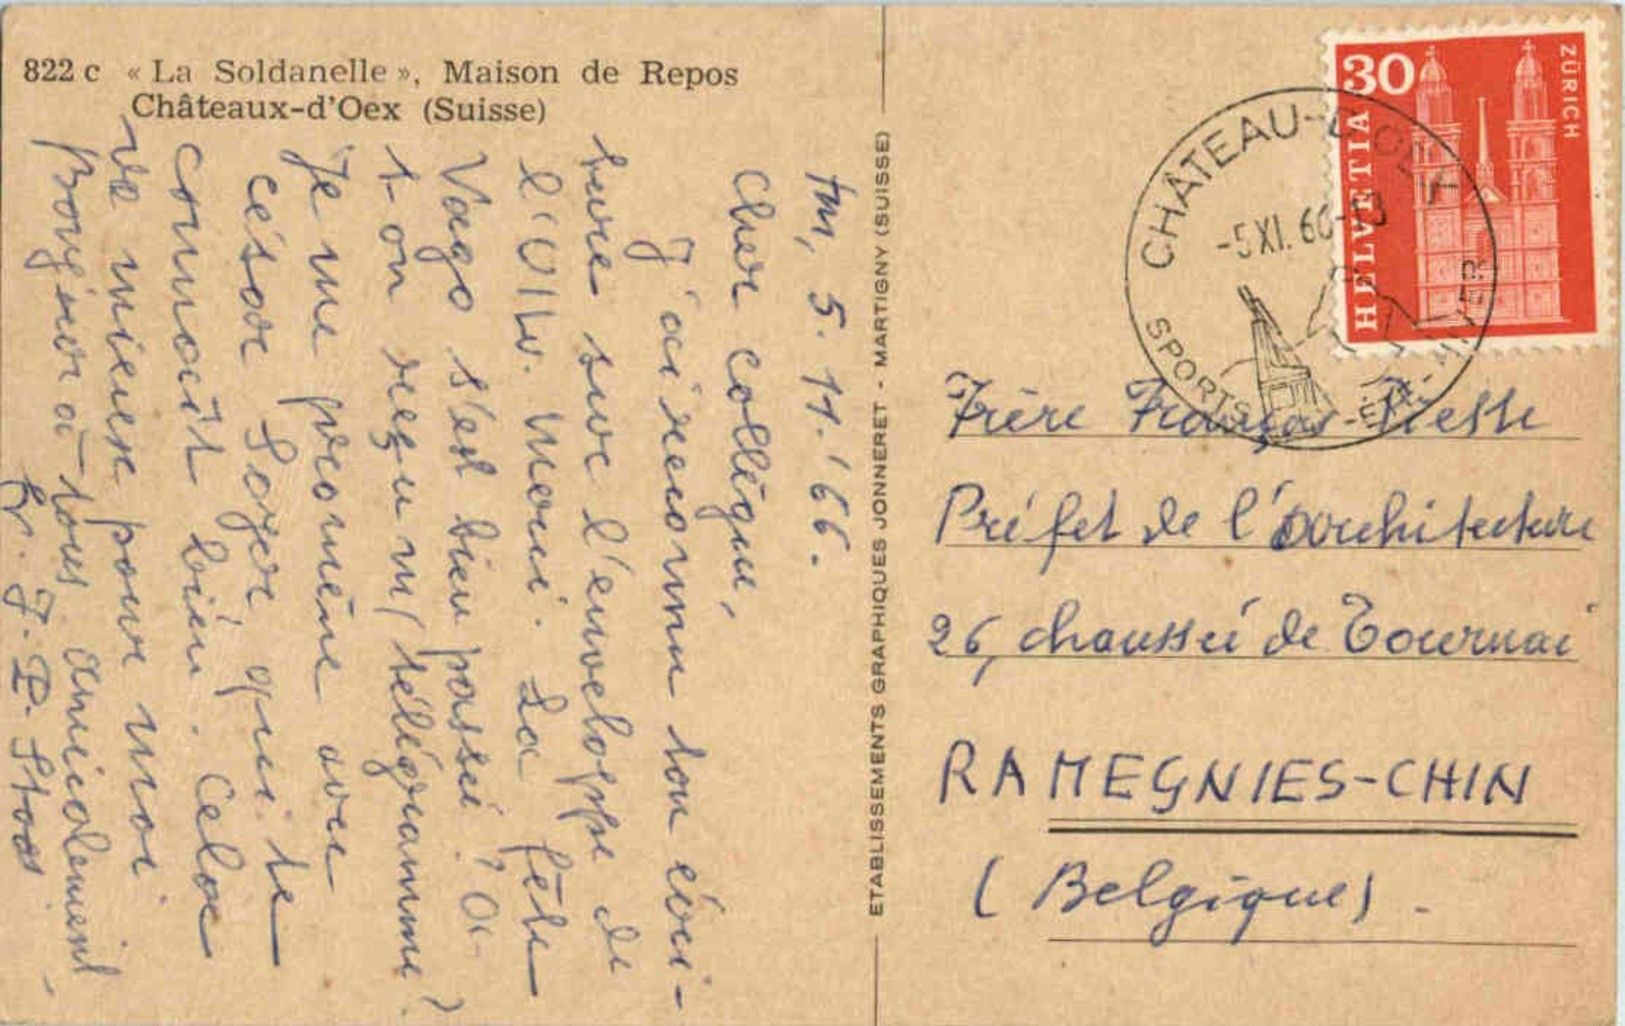 822 c « La Soldanelle », Maison de Repos
Châteaux-d'Oex (Suisse)
5.11.'66.
Cher collègue,
J'ai reconnu ton écri-
ture sur l'enveloppe de
l'OIW. Merci. La fête
Vago s'est bien passé. A-
t-on reçu m/ télégramme?
Je me promène avec
César Soyer qui te
connaît bien. Cela
va mieux pour moi
Bonjour à tous. Amicalement,
fr. J. P.
ETABLISSEMENTS GRAPHIQUES JONNERET - MARTIGNY (SUISSE)
30
HELVETIA
ZÜRICH
CHÂTEAU-D'OEX
-5.XI.66-
SPORTS ÉTÉ-HIVER
Frère François
Préfet de l'architecture
26, chaussée de Tournai
RAMEGNIES-CHIN
(Belgique).